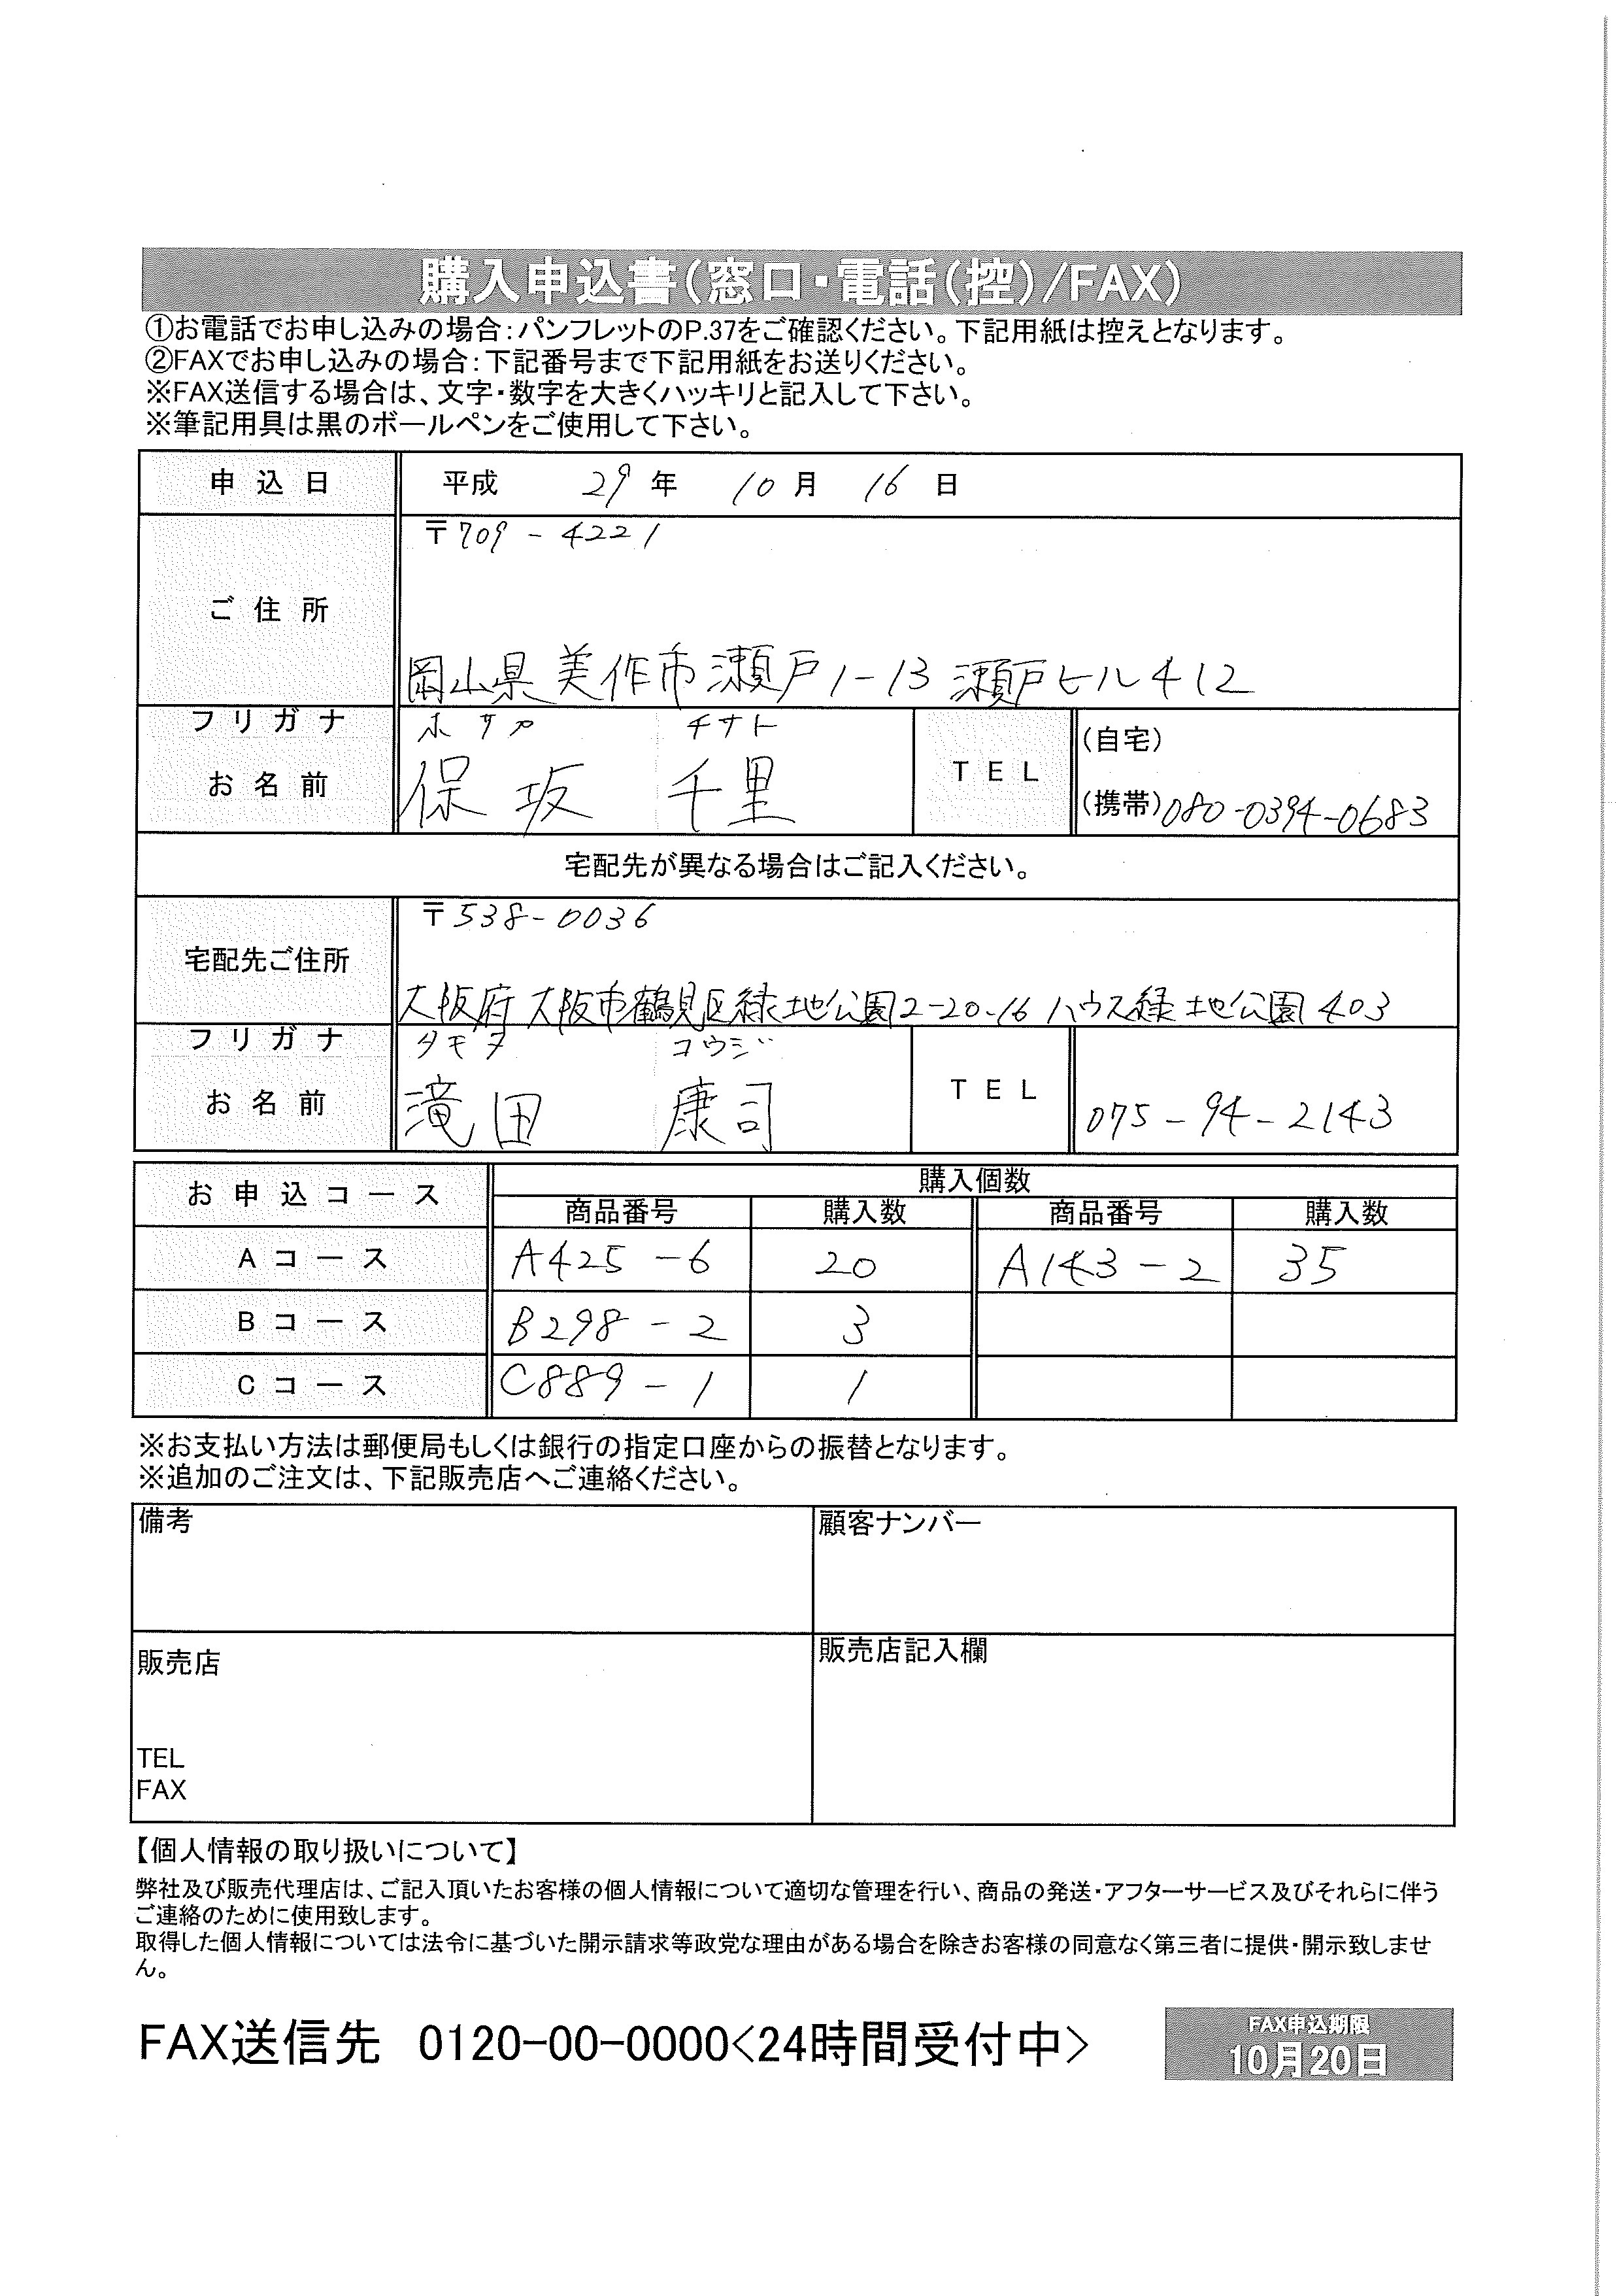 購入申込書(窓口・電話(控)/FAX)
①お電話でお申し込みの場合:パンフレットのP.37をご確認ください。下記用紙は控えとなります。
②FAXでお申し込みの場合:下記番号まで下記用紙をお送りください。
※FAX送信する場合は、文字・数字を大きくハッキリと記入して下さい。
※筆記用具は黒のボールペンをご使用して下さい。
申込日 平成 29年 10月 16日
ご住所 〒709-4221
岡山県美作市瀬戸1-13 瀬戸ヒル412
フリガナ ホサカ チサト
お名前 保坂 千里 TEL (自宅)
(携帯)080-0394-0683
宅配先が異なる場合はご記入ください。
宅配先ご住所 〒538-0036
大阪府大阪市鶴見区緑地公園2-20-16 ハウス緑地公園403
フリガナ タキタ コウジ
お名前 滝田 康司 TEL 075-94-2143
お申込コース 購入個数
商品番号 購入数 商品番号 購入数
Aコース A425-6 20 A143-2 35
Bコース B298-2 3
Cコース C889-1 1
※お支払い方法は郵便局もしくは銀行の指定口座からの振替となります。
※追加のご注文は、下記販売店へご連絡ください。
備考 顧客ナンバー
販売店 販売店記入欄
TEL
FAX
【個人情報の取り扱いについて】
弊社及び販売代理店は、ご記入頂いたお客様の個人情報について適切な管理を行い、商品の発送・アフターサービス及びそれらに伴う
ご連絡のために使用致します。
取得した個人情報については法令に基づいた開示請求等政党な理由がある場合を除きお客様の同意なく第三者に提供・開示致しませ
ん。
FAX送信先 0120-00-0000<24時間受付中>
FAX申込期限
10月20日